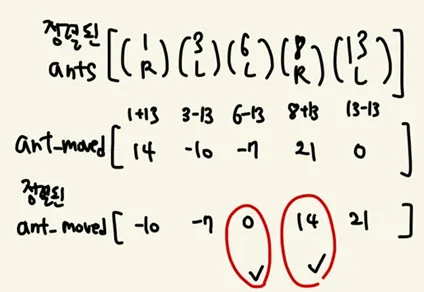 정렬된
ants [(1 R) (3 L) (6 L) (8 R) (13 L)]
1+13 3-13 6-13 8+13 13-13
ant_moved [ 14 -10 -7 21 0 ]
정렬된
ant_moved [ -10 -7 0 14 21 ]